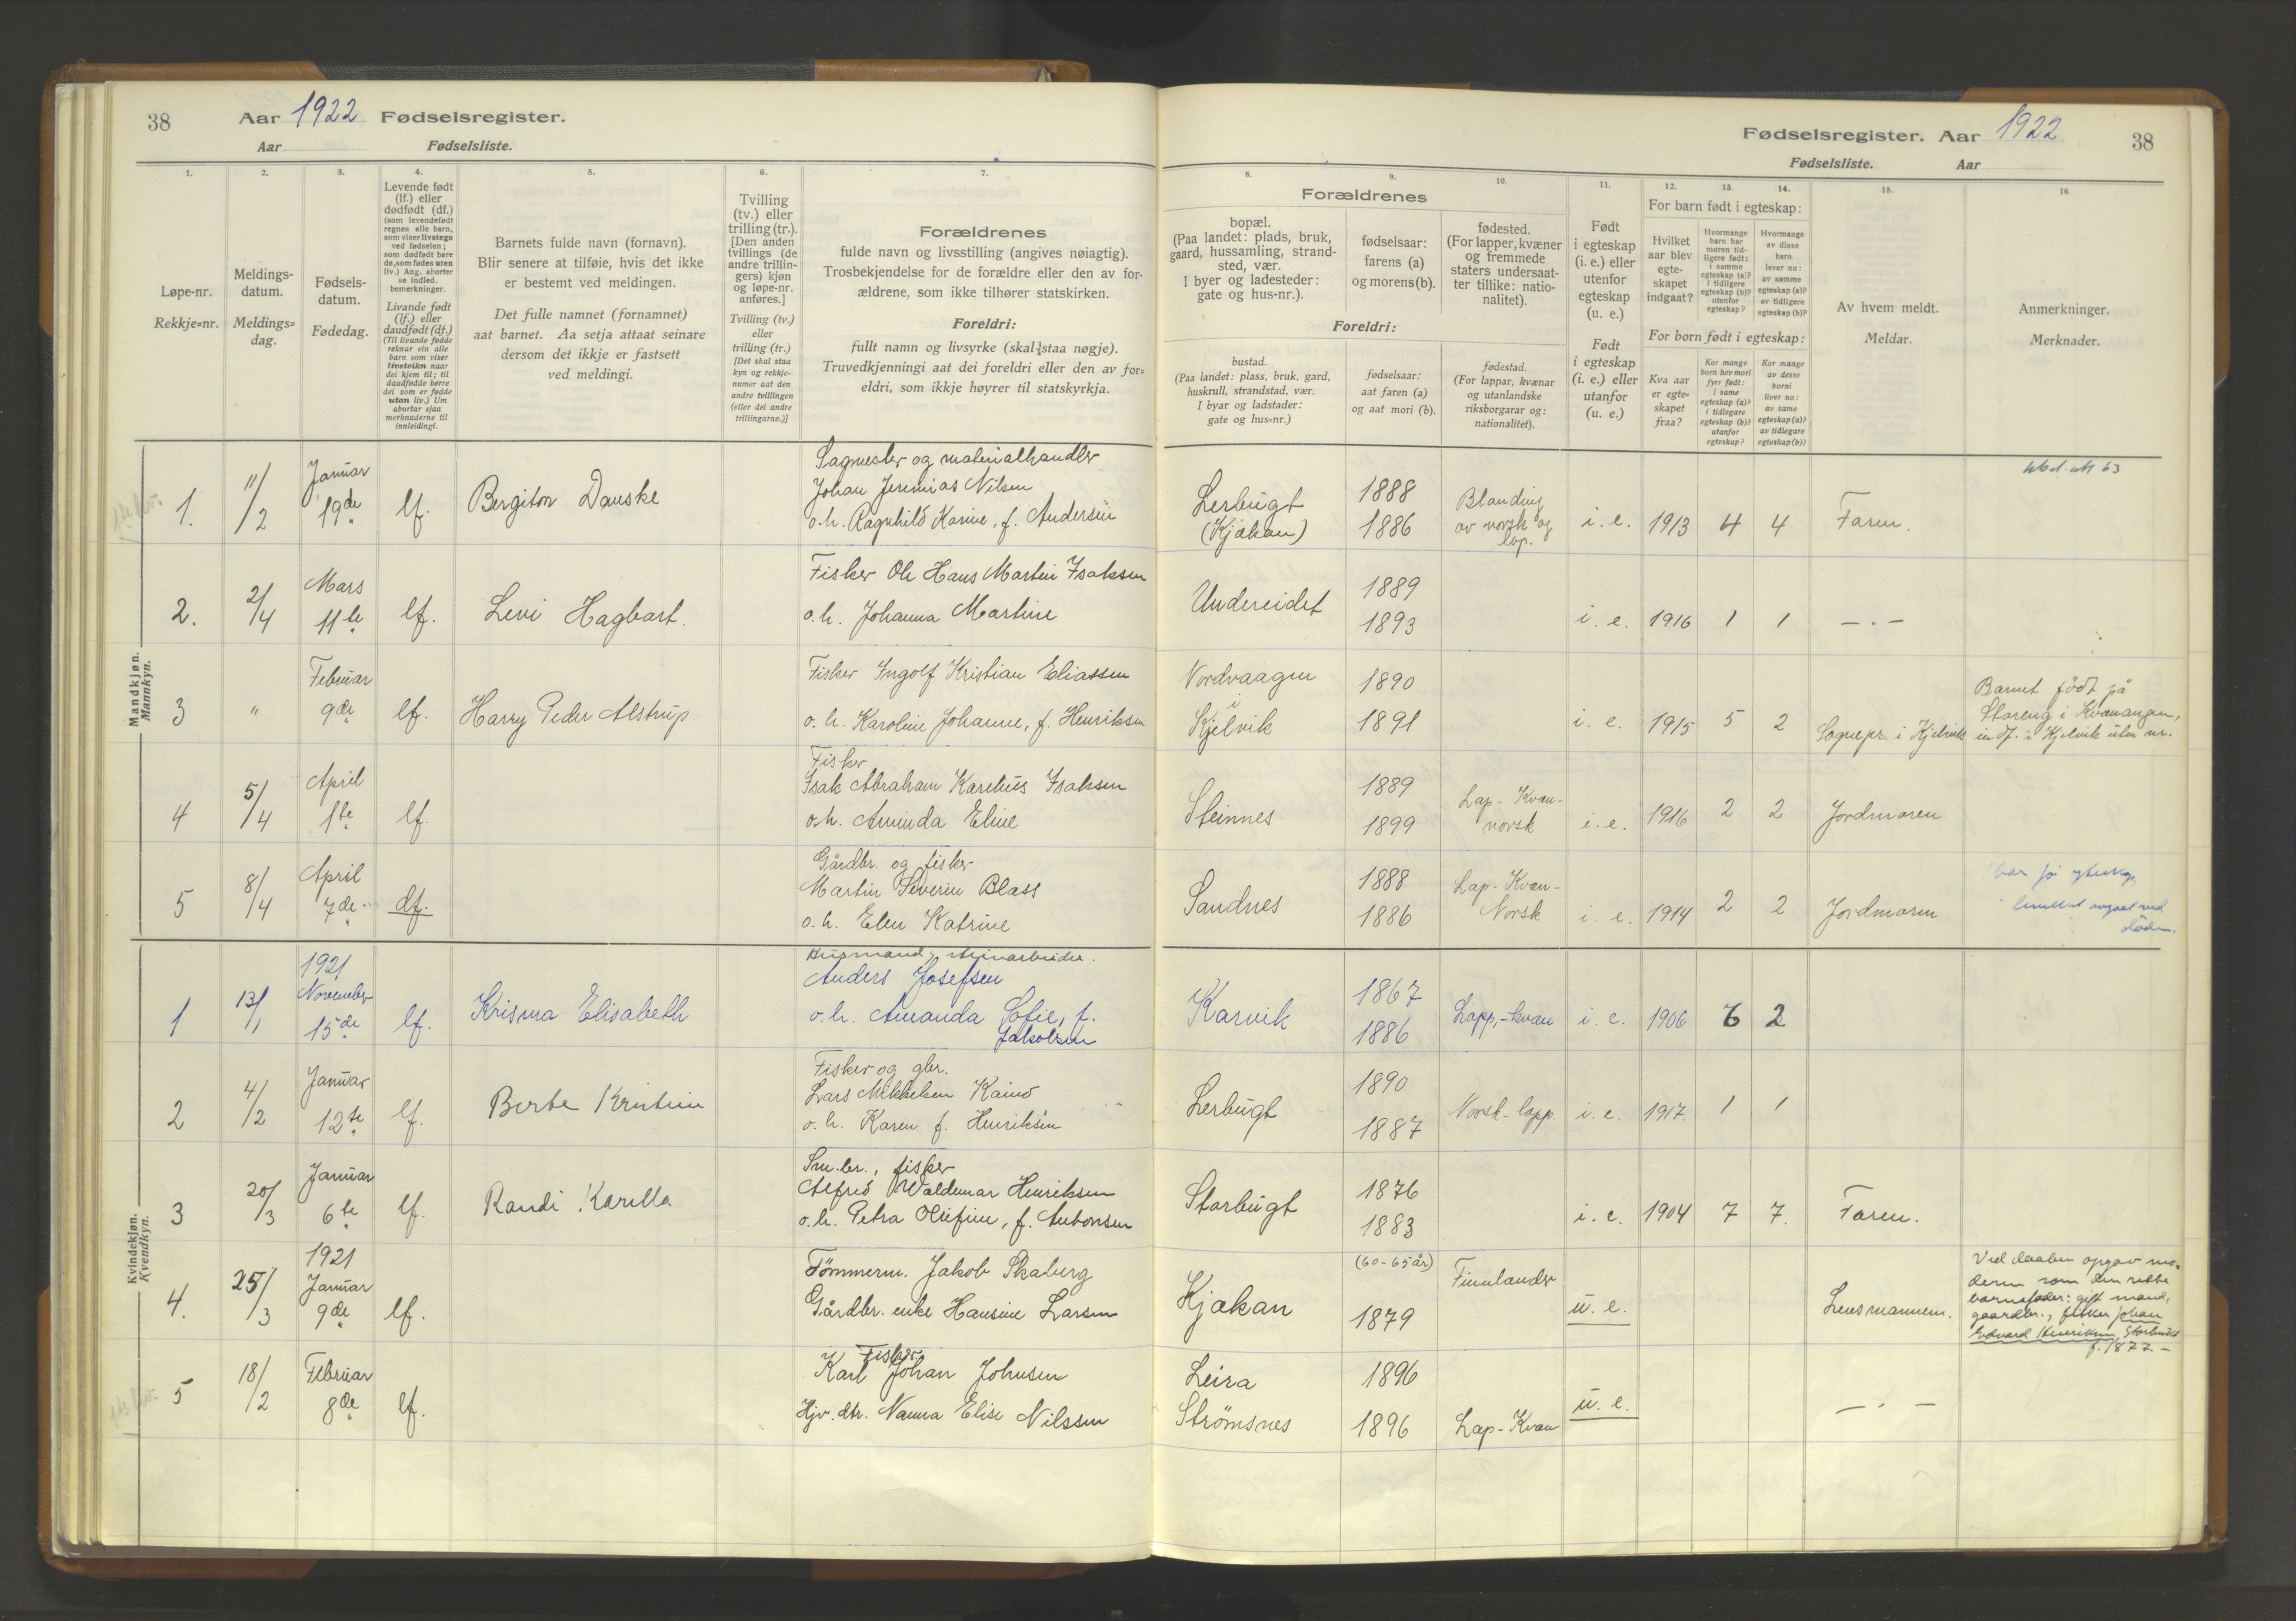 38 Aar 1922 Fødselsregister.
Aar Fødselsliste.
1. 2. 3. 4. 5. 6. 7.
Løpe-nr.
Rekkje=nr.
Meldings-
datum.
Meldings=
dag.
Fødsels-
datum.
Fødedag.
Levende født
(lf.) eller
dødfødt (df.)
(som levendefødt
regnes alle barn,
som viser livstegn
ved fødselen;
som dødfødt bare
de, som fødes uten
liv.) Ang. aborter
se indled.
bemerkninger.
Livande født
(lf.) eller
daudfødt (df.)
(Til livande fødde
reknar ein alle
barn som viser
livsteikn naar
dei kjem til; til
daudfødde berre
dei som er fødde
utan liv.) Um
abortar sjaa
merknaderne til
innleidingi.
Barnets fulde navn (fornavn).
Blir senere at tilføie, hvis det ikke
er bestemt ved meldingen.
Det fulle namnet (fornamnet)
aat barnet. Aa setja attaat seinare
dersom det ikkje er fastsett
ved meldingi.
Tvilling
(tv.) eller
trilling (tr.).
[Den anden
tvillings (de
andre trillin-
gers) kjøn
og løpe-nr.
anføres.]
Tvilling (tv.)
eller
trilling (tr.)
[Det skal staa
kyn og rekkje-
numer aat den
andre tvillingen
(eller dei andre
trillingarne.)]
Forældrenes
fulde navn og livsstilling (angives nøiagtig).
Trosbekjendelse for de forældre eller den av for-
ældrene, som ikke tilhører statskirken.
Foreldri:
fullt namn og livsyrke (skal staa nøgje).
Truvedkjenningi aat dei foreldri eller den av for=
eldri, som ikkje høyrer til statskyrkja.
Mandkjøn.
Mannkyn.
1. 11/2 Januar 19de lf. Bergiton Dauske
Sagmester og materialhandler
Johan Jeremias Nilsen
o.h. Ragnhild Karine, f. Andersen
2. 2/4 Mars 11te lf. Levi Hagbart.
Fisker Ole Hans Martin Isaksen
o.h. Johanna Martine
3 " Februar 9de lf. Harry Peder Alstrup
Fisker Ingolf Kristian Eliassen
o.h. Karoline Johanne, f. Henriksen
4 5/4 April 1te lf.
Fisker
Isak Abraham Karelius Isaksen
o.h. Aminda Eline
5 8/4 April 7de df.
Gårdbr. og fisker
Martin Severin Blass
o.h. Elen Katrine
Kvindekjøn.
Kvendkyn.
1 13/1 1921 November 15de lf. Krisma Elisabeth
Husmand, steinarbeider.
Anders Josefsen
o.h. Amanda Sofie, f.
Jakobsen
2 4/2 Januar 12te lf. Berte Kristine
Fisker og gbr.
Lars Mikkelsen Kaino
o.h. Karen f. Henriksen
3 20/3 Januar 6te lf. Randi Karilla
Sm.br., fisker
Alfred Waldemar Henriksen
o.h. Petra Olufine, f. Antonsen
4. 25/3 1921 Januar 9de lf.
Tømmerm. Jakob Skaberg
Gårdbr. enke Hansine Larsen
5 18/2 Februar 8de lf.
Fisker
Karl Johan Johnsen
Hjv. dtr. Nanna Elise Nilssen
Fødselsregister. Aar 1922 38
Fødselsliste. Aar
8. 9. 10. 11. 12. 13. 14. 15. 16.
Forældrenes
bopæl.
(Paa landet: plads, bruk,
gaard, hussamling, strand-
sted, vær.
I byer og ladesteder:
gate og hus-nr.).
fødselsaar:
farens (a)
og morens (b).
fødested.
(For lapper, kvæner
og fremmede
staters undersaat-
ter tillike: natio-
nalitet).
Foreldri:
bustad.
(Paa landet: plass, bruk, gard,
huskrull, strandstad, vær.
I byar og ladstader:
gate og hus=nr.)
fødselsaar:
aat faren (a)
og aat mori (b).
fødestad.
(For lappar, kvænar
og utanlandske
riksborgarar og:
nationalitet).
Født
i egteskap
(i. e.) eller
utenfor
egteskap
(u. e.)
Født
i egteskap
(i. e.) eller
utanfor
(u. e.)
For barn født i egteskap:
Hvilket
aar blev
egte-
skapet
indgaat?
Hvormange
barn har
moren tid-
ligere født:
i samme
egteskap (a)?
i tidligere
egteskap (b)?
utenfor
egteskap?
Hvormange
av disse
barn
lever nu:
av samme
egteskap (a)?
av tidligere
egteskap (b)?
For born født i egteskap:
Kva aar
er egte=
skapet
fraa?
Kor mange
born hev mori
fyrr født:
i same
egteskap (a)?
i tidlegare
egteskap (b)?
utanfor
egteskap?
Kor mange
av desse
borni
liver no:
av same
egteskap (a)?
av tidlegare
egteskap (b)?
Av hvem meldt.
Meldar.
Anmerkninger.
Merknader.
Lerbugt (Kjækan) 1888 1886 Blanding av norsk og lap. i. e. 1913 4 4 Faren.
63
Undereidet 1889 1893 i. e. 1916 1 1 — . —
Nordvaagen i Kjelvik 1890 1891 i. e. 1915 5 2 Sognepr. i Kjelvik
Barnet født på
Storeng i Kvænangen,
indf. i Kjelvik uten nr.
Steinnes 1889 1899 Lap- Kvæn- norsk i. e. 1916 2 2 Jordmoren
Sandnes 1888 1886 Lap- Kvæn- Norsk i. e. 1914 2 2 Jordmoren
Karvik 1867 1886 Lapp,-kvæn i. e. 1906 6 2
Lerbugt 1890 1887 Norsk-lapp i. e. 1917. 1 1
Storbugt 1876 1883 i. e. 1904 7 7. Faren.
Kjækan (60-65 år) 1879 Finnlender u. e. Lensmannen.
Ved daaben opgav mo-
deren som den rette
barnefader: gift mand,
gaardbr., fisker Johan
Edvard Henriksen, Storbukt
f. 1877 -
Leira
Strømsnes 1896 1896 Lap-Kvæn u. e. — . —